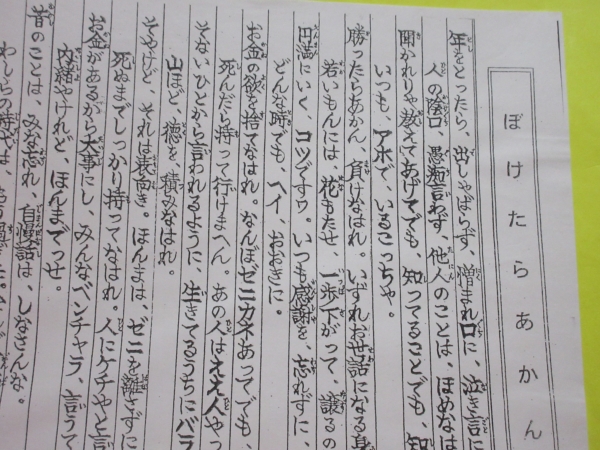 ぼけたらあかん
年をとったら、出しゃばらず、憎まれ口に、泣き言に
人の陰口、愚痴言わず、他人のことは、ほめなは
聞かれりゃ教えてあげてでも、知ってることでも、知
いつも、アホで、いるこっちゃ。
勝ったらあかん、負けなはれ。いずれお世話になる身
若いもんには、花もたせ、一歩下がって、譲るの
円満にいく、コツですワ。いつも感謝を、忘れずに、
どんな時でも、ヘイ、おおきに。
お金の欲を捨てなはれ。なんぼゼニカネあってでも、
死んだら持って行けまへん。あの人はええ人やっ
そないひとから言われるように、生きてるうちにバラ
山ほど、徳を、積みなはれ。
そやけど、それは表向き。ほんまは、ゼニを離さずに
死ぬまでしっかり持ってなはれ。人にケチやと言
お金があるから大事にし、みんなベンチャラ、言うて
内緒やけれど、ほんまでっせ。
昔のことは、みな忘れ、自慢話は、しなさんな。
わしらの時代は、